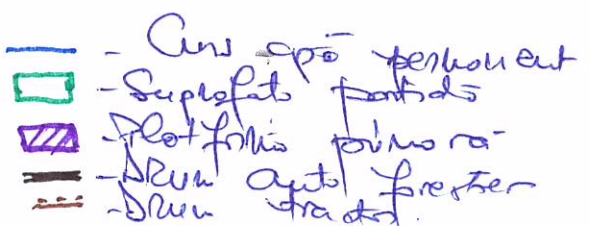 - Curs apă permanent
- Suprafață partidă
- Platformă primară
- Drum auto forestier
- Drum tractor.